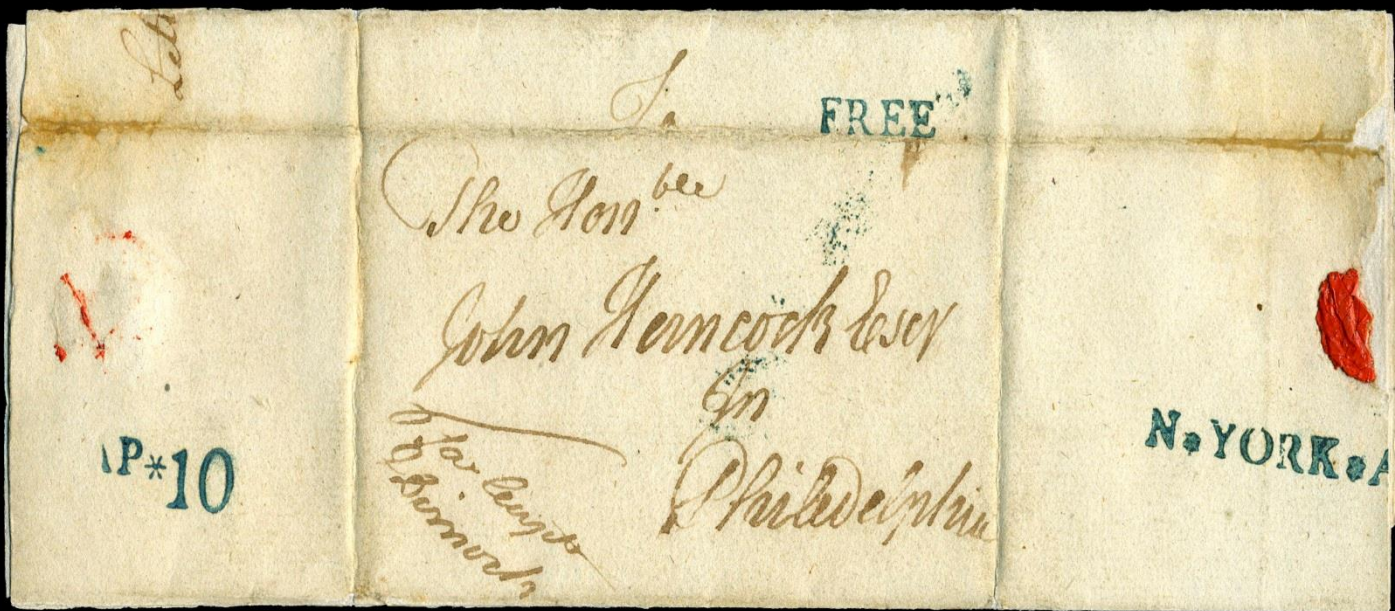 To
FREE
The Hon.ble
John Hancock Esqr
In
Philadelphia
P*10
N.YORK.A